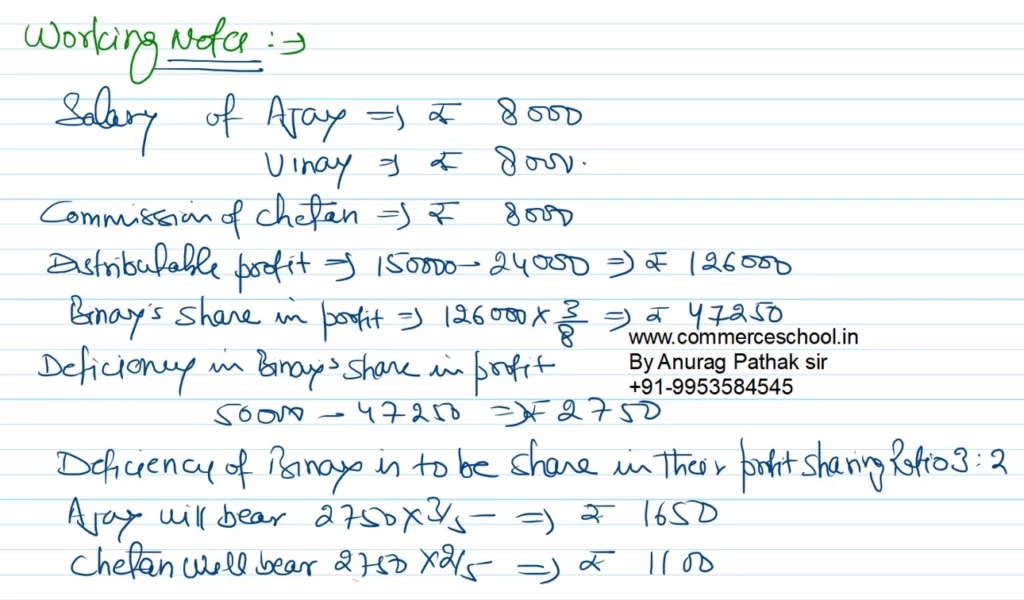 Working Note :⇒
Salary of Ajay ⇒ ₹ 8000
Vinay ⇒ ₹ 8000.
Commission of Chetan ⇒ ₹ 8000
Distributable profit ⇒ 150000 - 24000 ⇒ ₹ 126000
Binay's share in profit ⇒ 126000 × 3/8 ⇒ ₹ 47250
www.commerceschool.in
By Anurag Pathak sir
+91-9953584545
Deficiency in Binay's share in profit
50000 - 47250 ⇒ ₹ 2750
Deficiency of Binay is to be share in their profit sharing Ratio 3:2
Ajay will bear 2750 × 3/5 ⇒ ₹ 1650
Chetan will bear 2750 × 2/5 ⇒ ₹ 1100